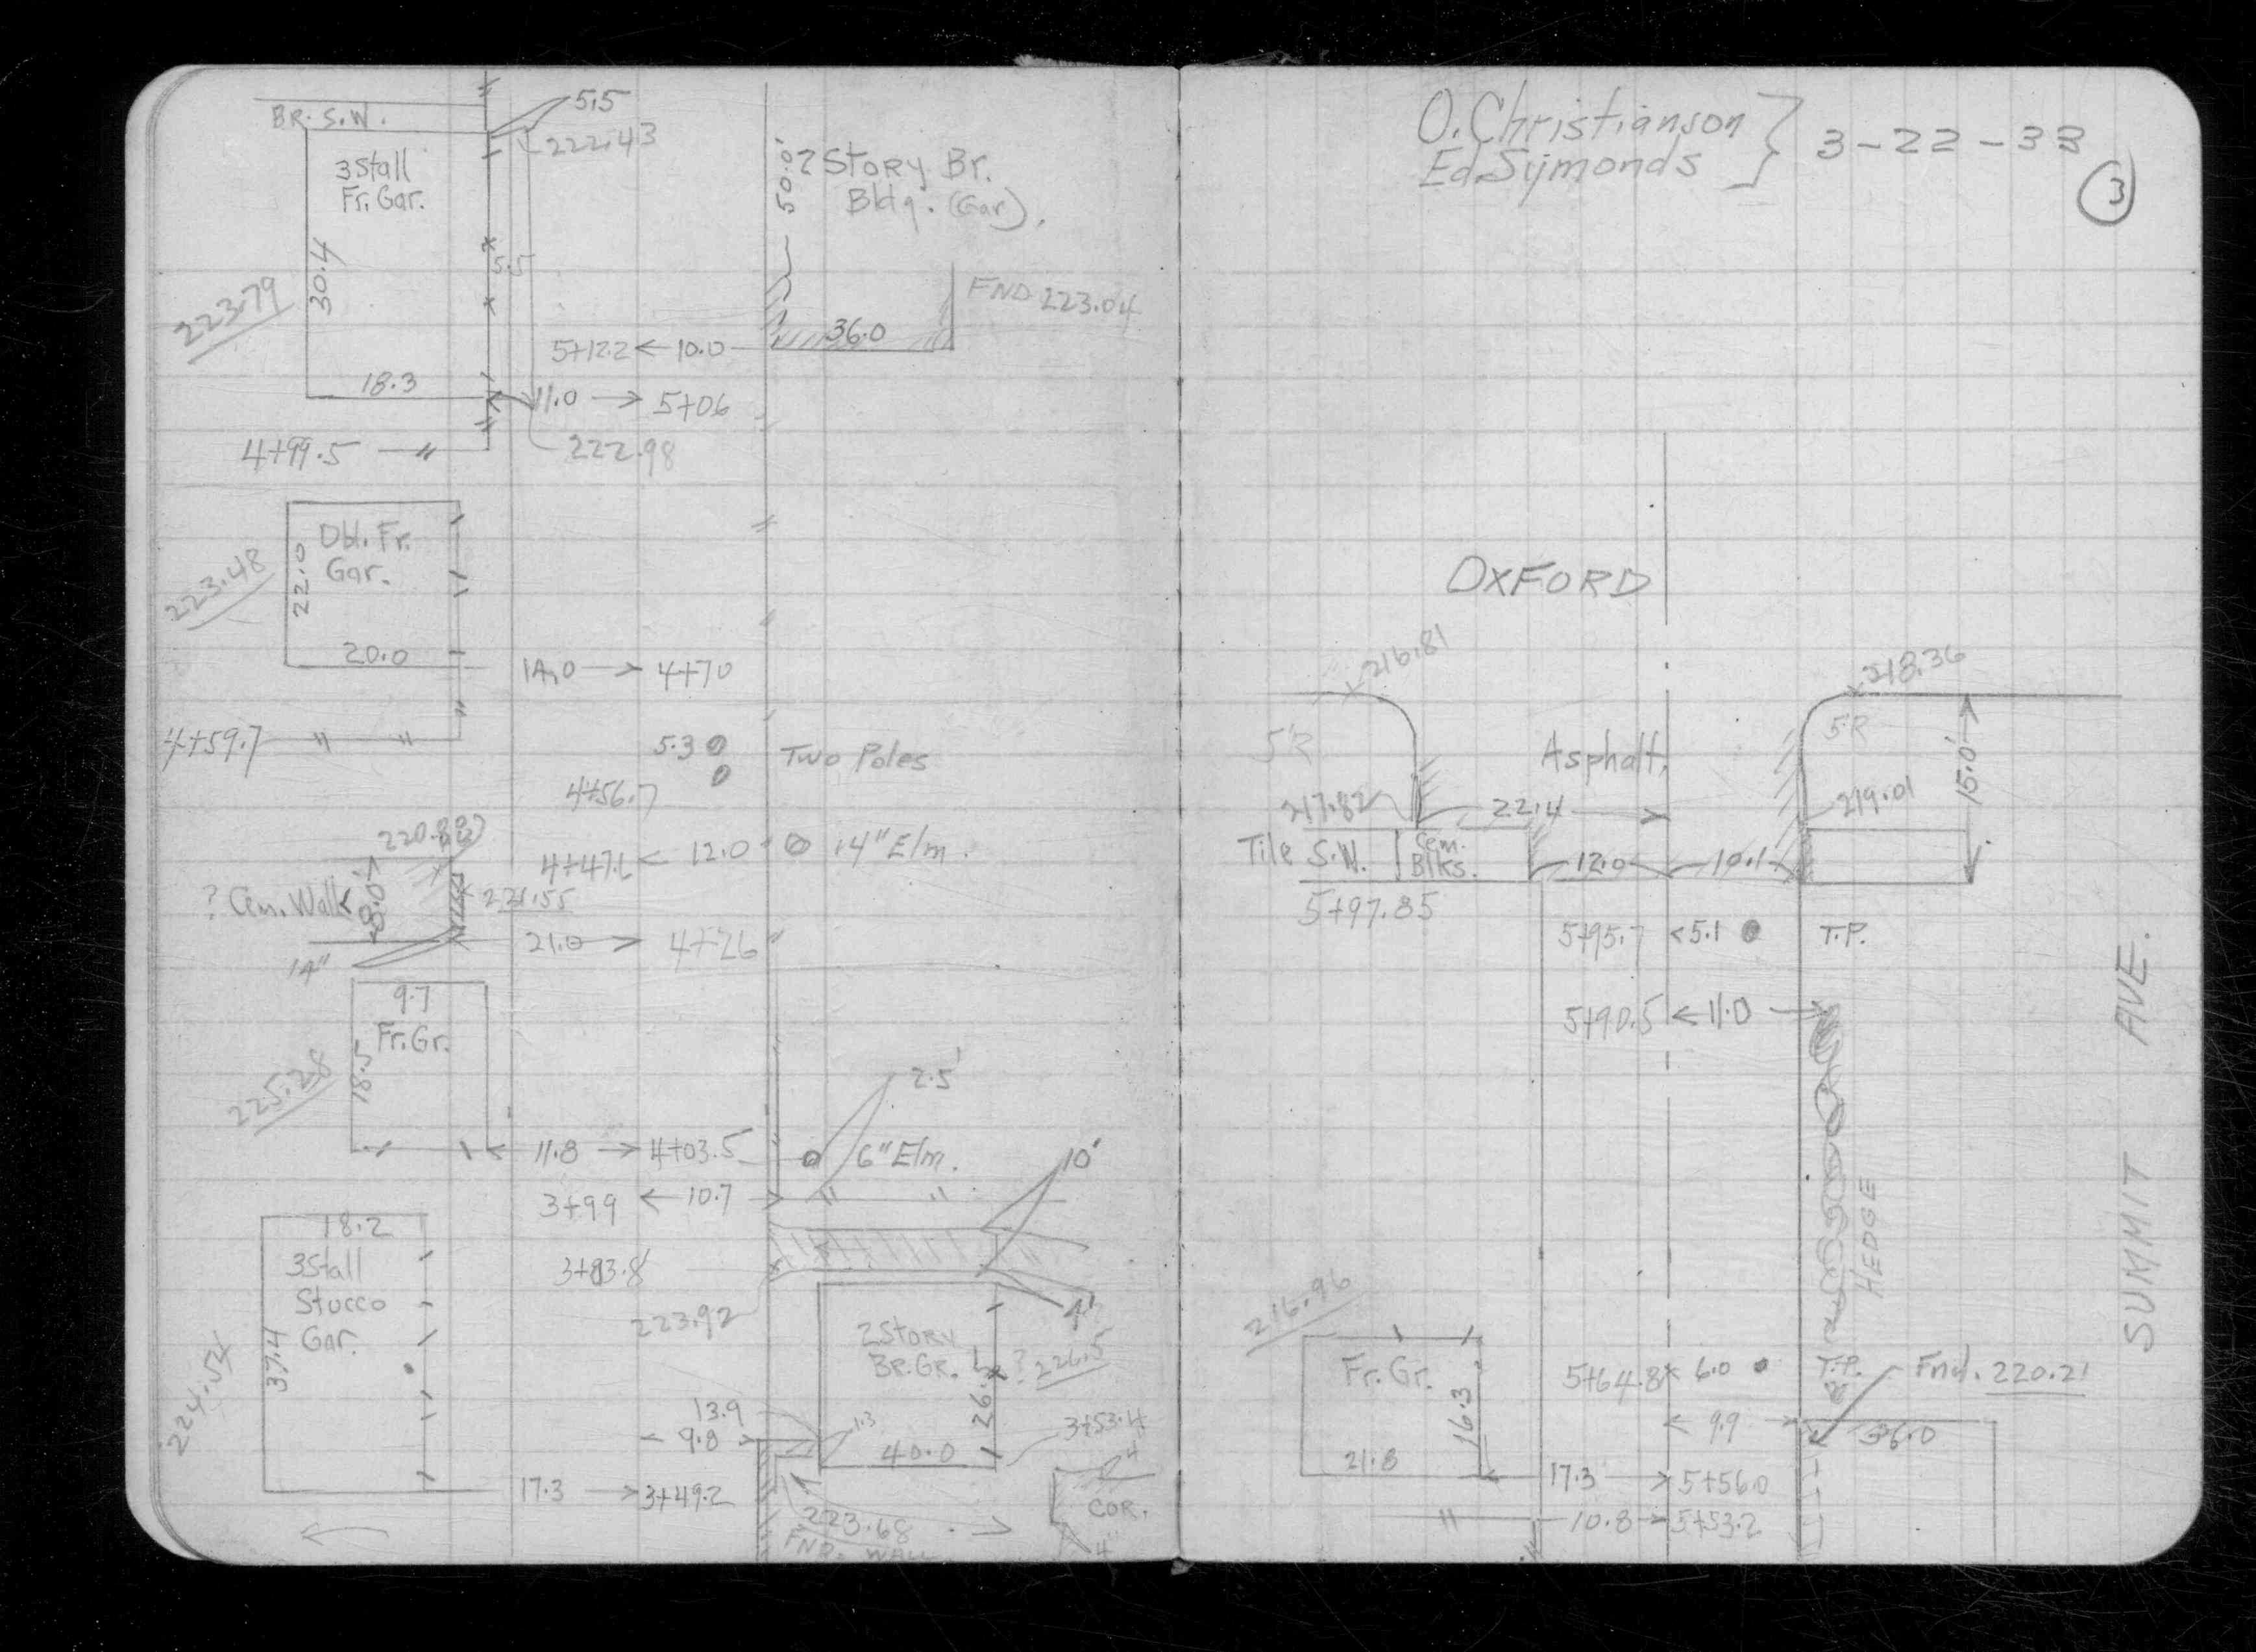 BR. S.W.
5.5
222.43
3 Stall
Fr. Gar.
30.4
5.5
223.79
18.3
50.0'
2 Story Br.
Bldg. (Gar).
FND 223.04
36.0
5+12.2 ← 10.0
11.0 → 5+06
4+99.5
222.98
Dbl. Fr.
Gar.
22.0
223.48
20.0
14.0 → 4+70
4+59.7 " "
5.3
Two Poles
4+56.7
4+47.2 ← 12.0
14" Elm.
? Cem. Walk
8.0'
221.55
21.0 → 4+26
14"
9.7
Fr. Gr.
18.5
225.28
2.5'
11.8 → 4+03.5
6" Elm.
10'
3+99 ← 10.7
" "
18.2
3 Stall
Stucco
Gar.
37.4
224.54
3+83.8
223.92
4'
2 Story
Br. Gr.
26.5
? 226.5
13.9
1.3
9.8
40.0
3+53.4
17.3 → 3+49.2
4"
COR.
4"
223.68
FND. WALL
O. Christianson
Ed. Symonds } 3-22-33
3
OXFORD
216.81
218.36
5'R
5'R
Asphalt.
15.0'
217.82
22.4
219.01
Tile S.W.
Cem.
Blks.
12.0
10.1
5+97.85
5+95.7 < 5.1
T.P.
5+90.5 ← 11.0 →
HEDGE
SUMMIT AVE.
216.96
Fr. Gr.
16.3
21.8
5+64.8 6.0
T.P.
Fnd. 220.21
← 9.9 →
36.0
17.3 → 5+56.0
"
10.8 → 5+53.2